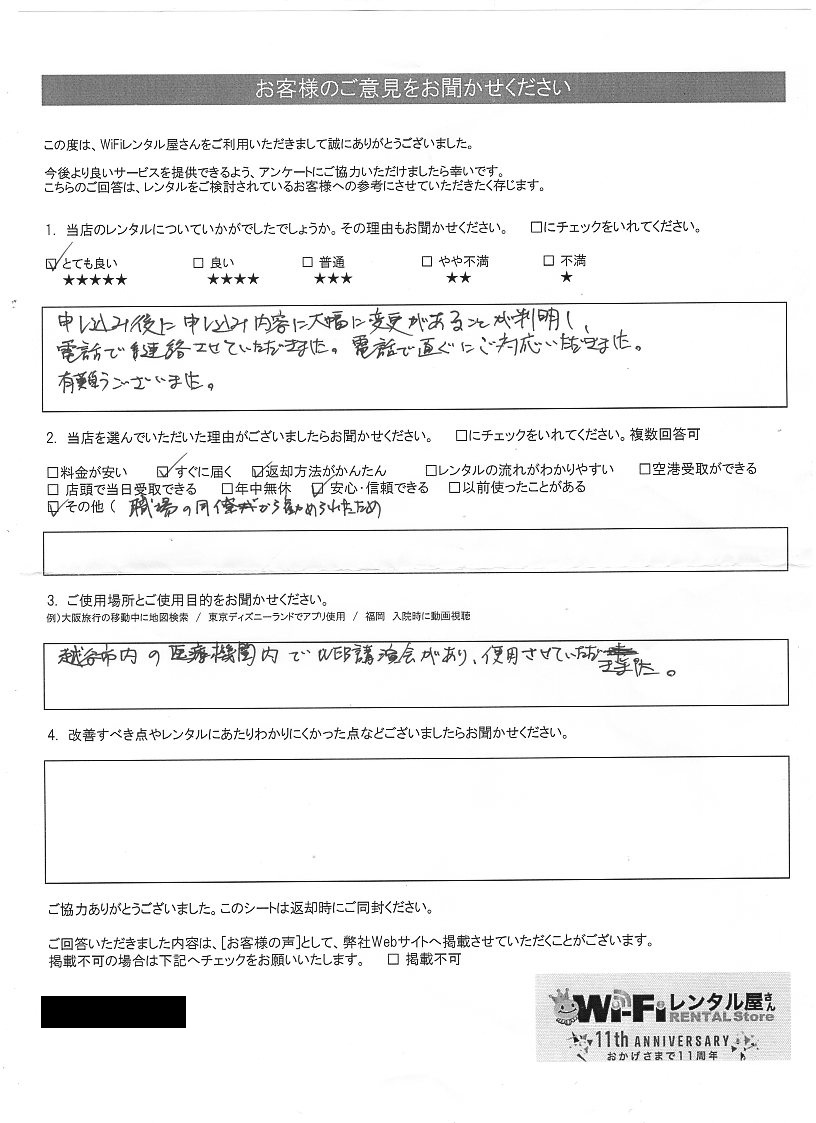 お客様のご意見をお聞かせください
この度は、WiFiレンタル屋さんをご利用いただきまして誠にありがとうございました。
今後より良いサービスを提供できるよう、アンケートにご協力いただけましたら幸いです。
こちらのご回答は、レンタルをご検討されているお客様への参考にさせていただきたく存じます。
1. 当店のレンタルについていかがでしたでしょうか。その理由もお聞かせください。 □にチェックをいれてください。
☑とても良い □ 良い □ 普通 □ やや不満 □ 不満
★★★★★ ★★★★ ★★★ ★★ ★
申し込み後に申し込み内容に大幅に変更があることが判明し、
電話で連絡させていただきました。電話で直ぐにご対応いただきました。
有難うございました。
2. 当店を選んでいただいた理由がございましたらお聞かせください。 □にチェックをいれてください。複数回答可
□料金が安い ☑すぐに届く ☑返却方法がかんたん □レンタルの流れがわかりやすい □空港受取ができる
□ 店頭で当日受取できる □年中無休 ☑ 安心・信頼できる □以前使ったことがある
☑その他 ( 職場の同僚から勧められたため
3. ご使用場所とご使用目的をお聞かせください。
例)大阪旅行の移動中に地図検索 / 東京ディズニーランドでアプリ使用 / 福岡 入院時に動画視聴
越谷市内の医療機関内でWEB講演会があり、使用させていただ
きました。
4. 改善すべき点やレンタルにあたりわかりにくかった点などございましたらお聞かせください。
ご協力ありがとうございました。このシートは返却時にご同封ください。
ご回答いただきました内容は、[お客様の声]として、弊社Webサイトへ掲載させていただくことがございます。
掲載不可の場合は下記へチェックをお願いいたします。 □ 掲載不可
Wi-Fiレンタル屋さん
RENTAL Store
11th ANNIVERSARY
おかげさまで11周年